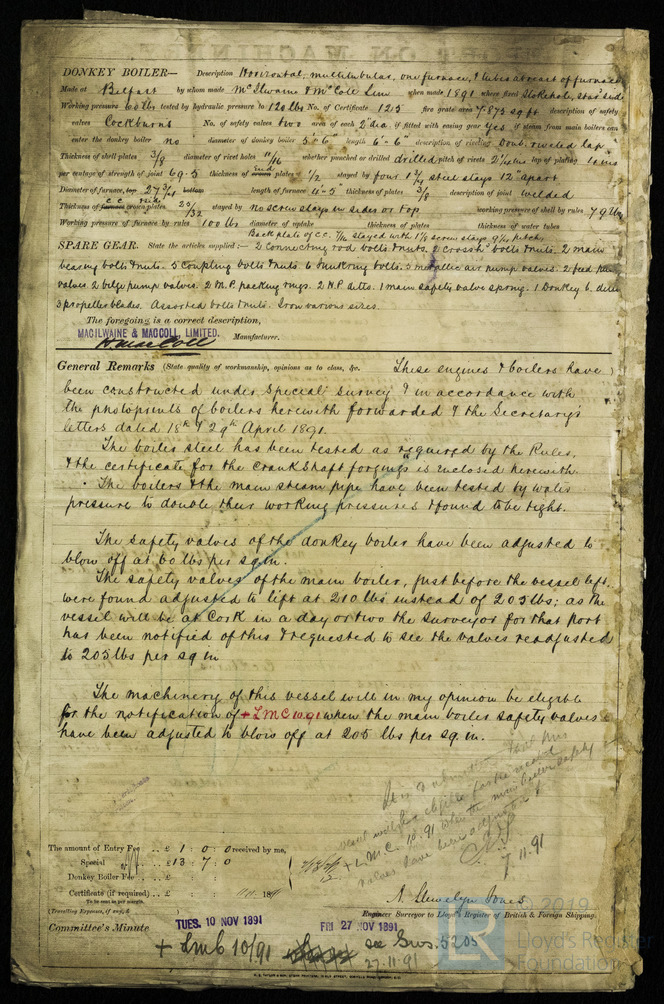 DONKEY BOILER— Description Horizontal, multitubular, one furnace, & tubes abreast of furnace
Made at Belfast by whom made McIlwaine & McColl Lim when made 1891 where fixed Stokehole, star'd side
Working pressure 60 lbs tested by hydraulic pressure to 120 lbs No. of Certificate 125 fire grate area 7.875 sq ft description of safety
valves Cockburns No. of safety valves two area of each 2" dia if fitted with easing gear yes if steam from main boilers can
enter the donkey boiler no diameter of donkey boiler 5'-6" length 6'-6" description of riveting Doub. riveted lap
Thickness of shell plates 3/8 diameter of rivet holes 11/16 whether punched or drilled drilled pitch of rivets lap of plating
per centage of strength of joint 69.5 thickness of end plates 1/2 stayed by four 1 3/4 steel stays 12" apart
Diameter of furnace, top 27 3/4 bottom length of furnace 4'-5" thickness of plates 3/8 description of joint welded
Thickness of furnace crown plates c.c. ends 20/32 stayed by no screw stays in sides or top working pressure of shell by rules 79 lbs
Working pressure of furnace by rules 100 lbs diameter of uptake thickness of plates thickness of water tubes
Back plate of c.c. 7/16 stayed with 1 1/8 screw stays, 9 1/2 pitch,
SPARE GEAR. State the articles supplied:— 2 Connecting rod bolts & nuts. 2 crossh'd bolts & nuts. 2 main
bearing bolts & nuts. 5 Coupling bolts & nuts. 6 Junk ring bolts. 3 metallic air pump valves. 2 feed pump
valves 2 bilge pump valves. 2 M.P. packing rings. 2 H.P. ditto. 1 main safety valve spring. 1 Donkey b. ditto
3 propeller blades. Assorted bolts & nuts. Iron various sizes.
The foregoing is a correct description,
MACILWAINE & MACCOLL, LIMITED. Manufacturer.
H. MacColl
General Remarks (State quality of workmanship, opinions as to class, &c. These engines & boilers have
been constructed under Special Survey & in accordance with
the photoprints of boilers herewith forwarded & the Secretary's
letters dated 18th & 29th April 1891.
The boiler steel has been tested as required by the Rules,
& the certificate for the Crank Shaft forgings is enclosed herewith.
The boilers & the main steam pipe have been tested by water
pressure to double their working pressures & found to be tight.
The safety valves of the donkey boiler have been adjusted to
blow off at 60 lbs per sq in.
The safety valves of the main boiler, just before the vessel left,
were found adjusted to lift at 210 lbs instead of 205 lbs; as the
vessel will be at Cork in a day or two the surveyor for that port
has been notified of this & requested to see the valves readjusted
to 205 lbs per sq in
The machinery of this vessel will in my opinion be eligible
for the notification of + LMC 10.91 when the main boiler safety valves
have been adjusted to blow off at 205 lbs per sq. in.
It is submitted that this
vessel will be eligible for the record
+ L.M.C. 10.91 when the main boiler safety
valves have been adjusted
7.11.91
The amount of Entry Fee .. £ 1 : 0 : 0 received by me,
Special .. £ 13 : 7 : 0
Donkey Boiler Fee .. £ : :
Certificate (if required) .. £ : :
To be sent as per margin.
(Travelling Expenses, if any, £ )
A. Llewelyn Jones
Engineer Surveyor to Lloyd's Register of British & Foreign Shipping.
Committee's Minute TUES. 10 NOV 1891 FRI 27 NOV 1891
+ LMC 10/91 see Gws. 5205
27.11.91
© 2019
LR Lloyd's Register
Foundation